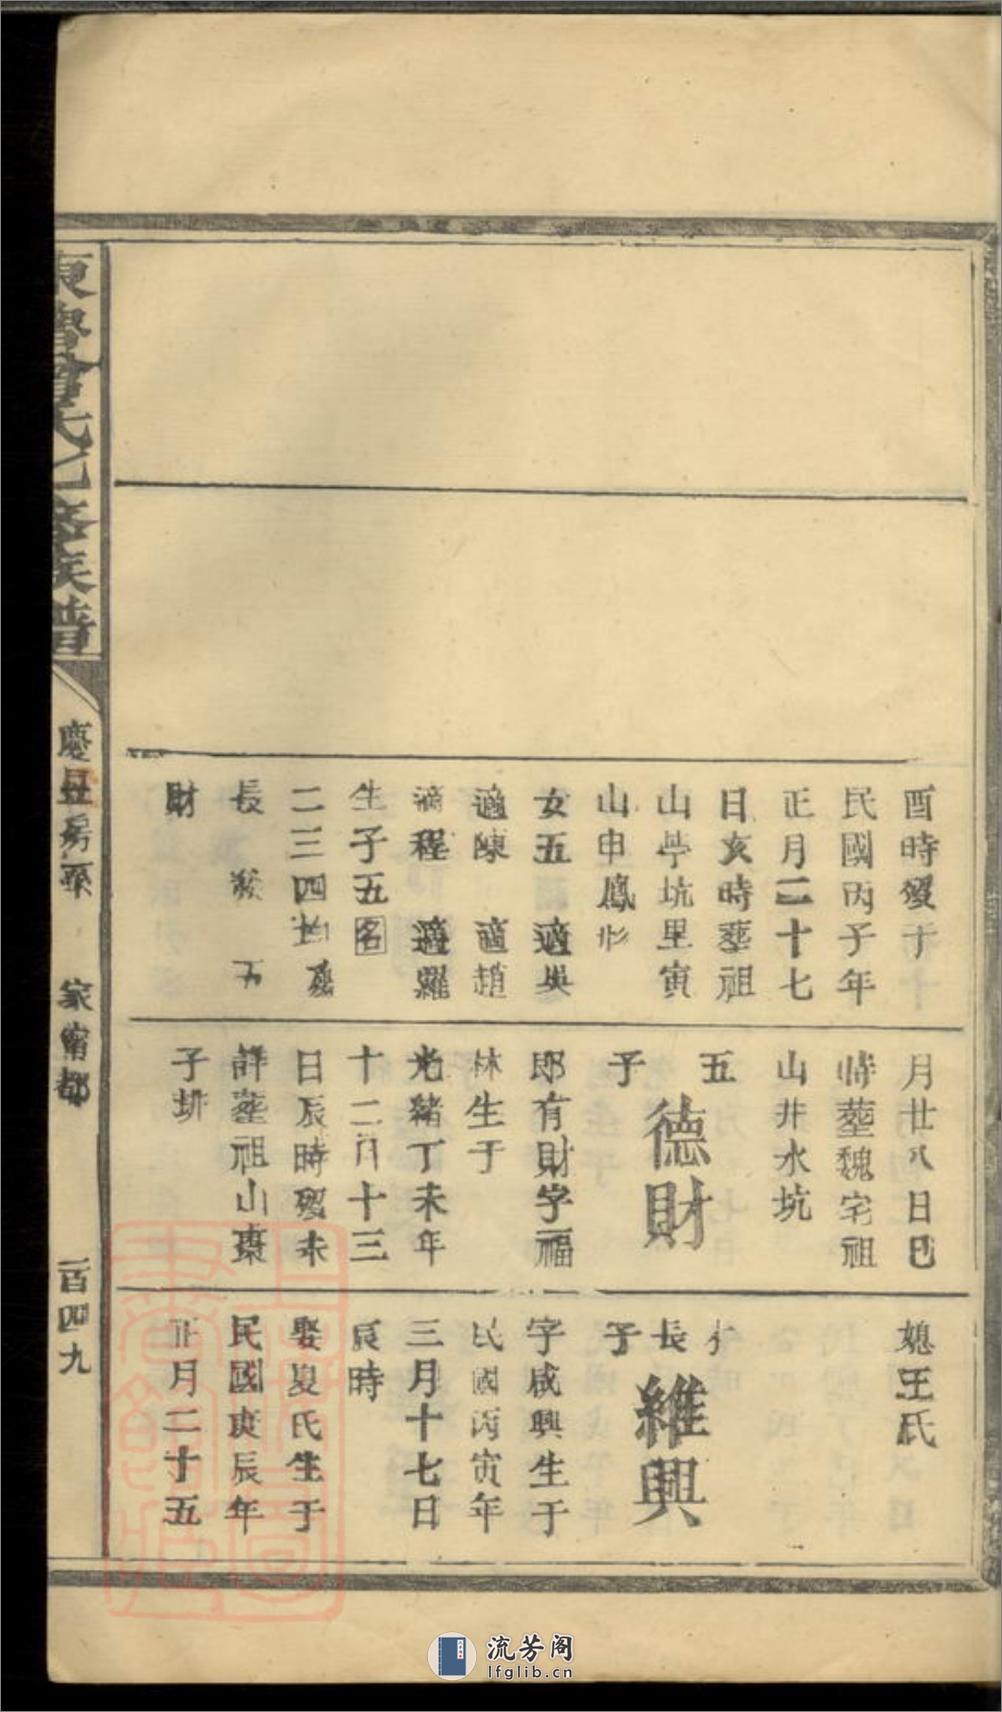 東魯曾氏七修族譜
家甯都
一百四九
酉時歿于
民國丙子年
正月二十七
日亥時塟祖
山學坑里寅
山申鳳形
女五 適吳
適陳 適趙
適程 適羅
生子五名
二三四
長
財
月廿八日巳
時塟魏宅祖
山井水坑
五
德財
子
郎有財字福
林生于
光緒丁未年
十二月十三
日辰時歿未
詳塟祖山棗
子排
媳王氏
長
維興
子
字咸興生于
民國丙寅年
三月十七日
辰時
娶夏氏生于
民國庚辰年
正月二十五
流芳阁
lfglib.cn